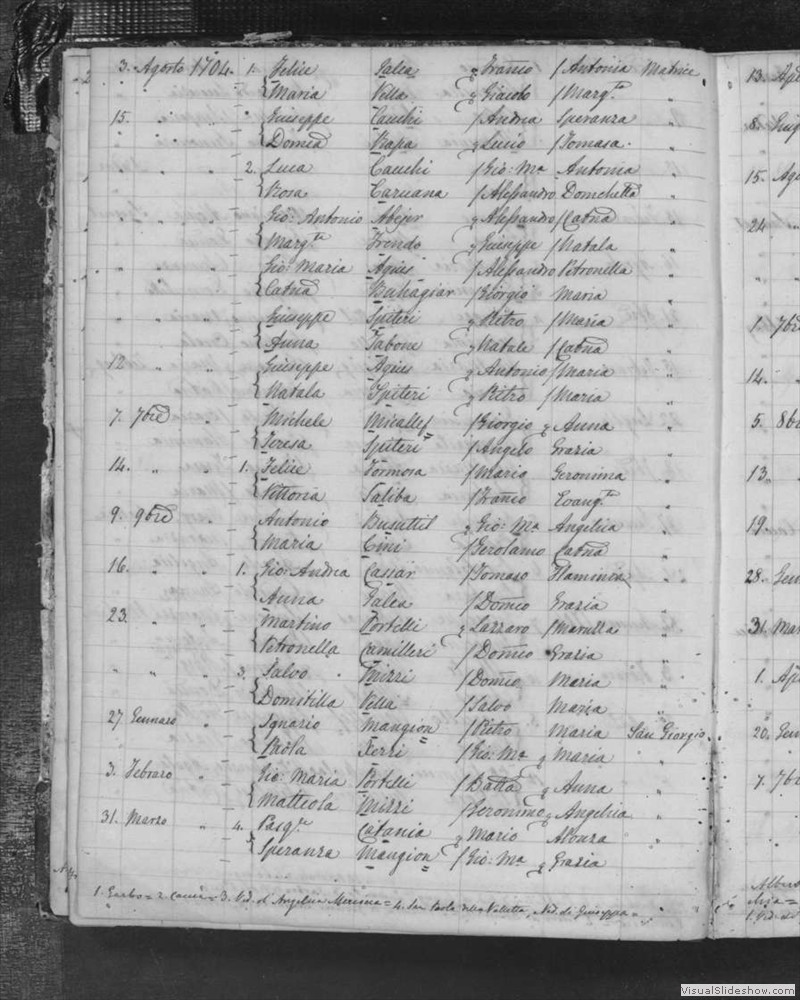 3. Agosto 1704. 1. Felice Galea q Franco / Antonia Matrice
Maria Villa q Giacobo / Margta
15. " " " Giuseppe Cauchi / Andrea Speranza "
Domca Rapa q Lucio / Tomasa. "
" " " 2. Luca Cauchi / Gio: Ma Antonia "
Rosa Caruana / Alessandro Domchetta "
" " " Gio: Antonio Abejer q Alessandro / Catna "
Margta Frendo q Giuseppe / Natala "
" " " Gio: Maria Agius / Alessandro Petronella "
Catna Buhagiar / Giorgio Maria "
" " " Giuseppe Spiteri q Pietro / Maria "
Anna Tabone q Natale / Catna "
12 " " Giuseppe Agius q Antonio / Maria "
Natala Spiteri q Pietro / Maria "
7. 7bre " Michele Micallef / Giorgio q Anna "
Teresa Spiteri / Angelo Grazia "
14. " " 1. Felice Formosa / Mario Geronima "
Vittoria Saliba / Franco Evangta "
9. 9bre " Antonio Busuttil q Gio: Ma Angelica "
Maria Cini / Gerolamo Catna "
16. " " 1. Gio: Andrea Cassar / Tomaso Flaminia "
Anna Galea / Domco Grazia "
23. " " Martino Portelli q Lazzaro / Marulla "
Petronella Camilleri / Domco Grazia "
" " " 3. Salvo Mizzi / Domco Maria "
Domitilla Vella / Salvo Maria "
27. Gennaro " Ignazio Mangion / Pietro Maria San Giorgio
Paola Xerri / Gio: Ma q Maria "
3. Febraro " Gio: Maria Portelli / Batta q Anna "
Matteola Mizzi / Geronimo q Angelica "
31. Marzo " 4. Pasqle Catania q Mario Alonza "
Speranza Mangion / Gio: Ma q Grazia "
1. Garbo = 2. Caccia = 3. Ved. d'Angelica = 4. San Paolo della Valletta, Ved. di Giuseppa =
13. Ap
8. Giug
15. Ag
24
1. 7b
14.
5. 8b
13
19.
28. Gen
31. Mar
1. Ap
20. Gen
7. 7b
VisualSlideshow.com